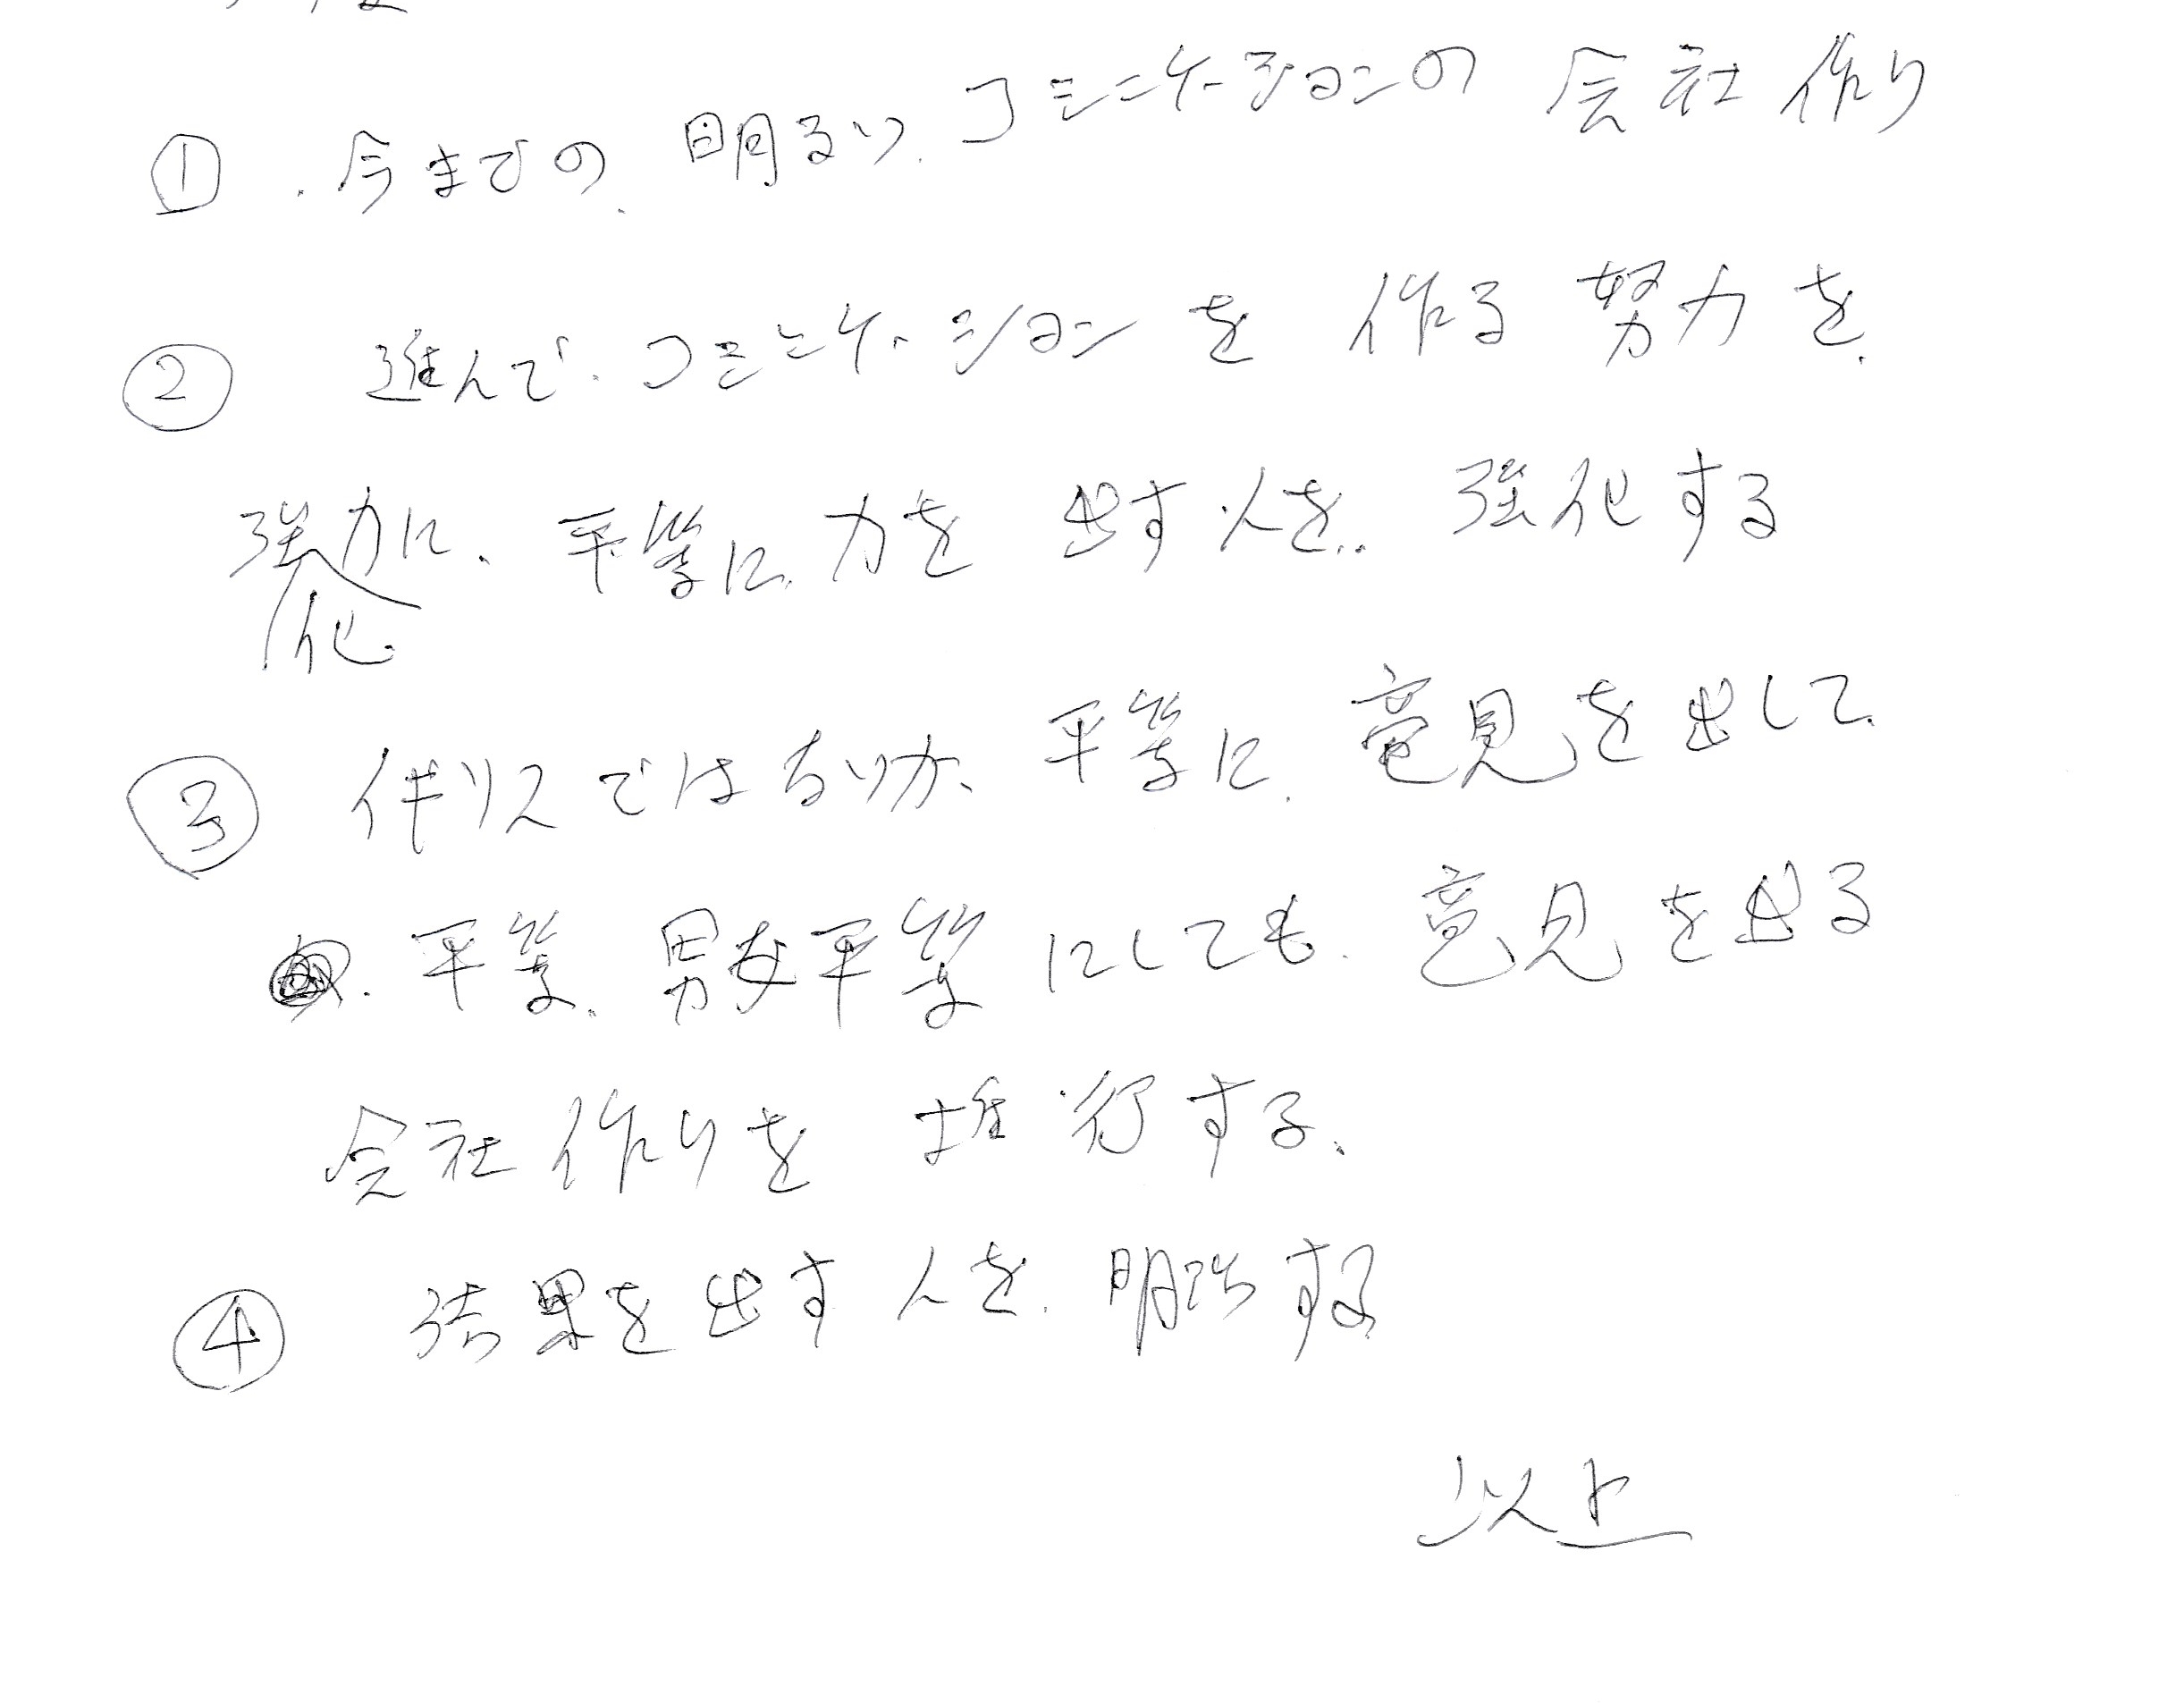 ① 今までの、明るい、コミニケーションの 会社 作り
② 進んで、コミニケーションを 作る 努力を、
強力に、平等に、力を 出す人を、強化する
化
③ ではないが、平等に、意見を出して、
平等、男女平等にしても、意見を出る
会社 作りを 推行する、
④ 結果を出す 人を、する
以上